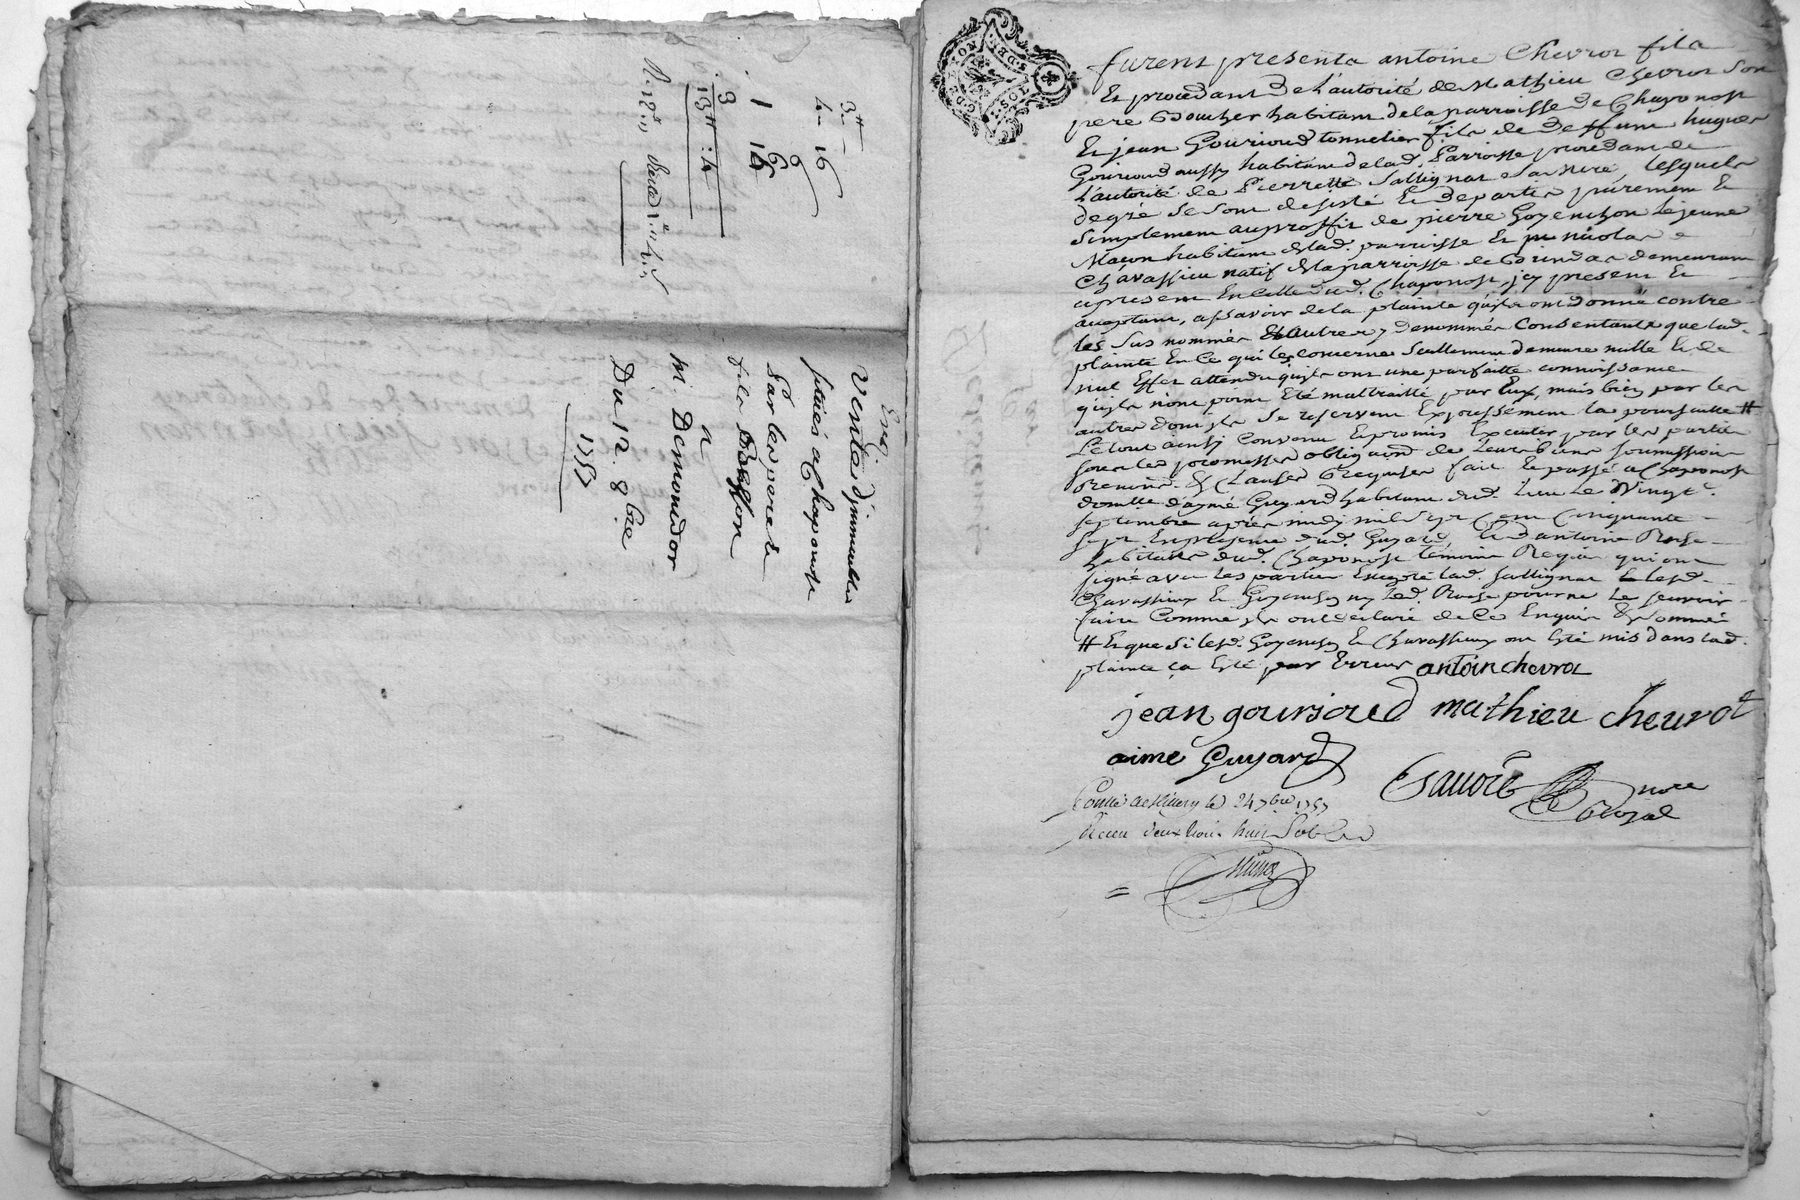 Enrg.
Vente d'immeubles
situés a Chaponost
Par les pere et
fils
a
Mr Demonidor
Du 12. 8bre
1757
3# 16
4 16
1 16
13# : 4
furent presents antoine Chevrot fils
Et procedant de l'autorité de Mathieu Chevrot son
pere Boucher habitant de la parroisse de Chaponost
Et jean Gourioud tonnelier fils de deffunt hugues
Gourioud aussy habitant de lad. Parroisse procedant de
l'autorité de Pierrette Sallignat sa mere, lesquels
de gré se sont desisté Et departis purement Et
simplement au proffit de pierre Goyenchon le jeune
Macon habitant de lad. parroisse Et nicolas
Chavassieu natif de la parroisse de Brindas demeurant
apresent En celle dud. Chaponost, jcy present Et
acceptant, assavoir de la plainte qu'ils ont donné contre
les sus nommés Et autres y denommés Consentants que lad.
plainte En ce qui les concerne seullement demeure nulle Et de
nul Effet attendu qu'ils ont une parfaitte connoissance
qu'ils n'ont point Eté maltraitté par Eux, mais bien par les
autres dont ils se reservent Expressement la poursuitte #
Le tout ainsy Convenu Et promis Executer par les parties
sous les promesses obligaons de leurs biens soumissions
Renonc. & Clauses Requises fait Et passé a Chaponost
domille d'aymé Guyard habitant dud. lieu le Vingt
septembre après midy mil sept Cent Cinquante
sept En presence dud. Guyard, Et d'antoine Rose
habitants dud. Chaponost temoins Requis qui ont
signé avec les parties Excepté lad. Sallignat Et lesd.
Chavassieux Et Goyenchon ny led. Rose pour ne le sçavoir
faire Comme ils ont declaré de ce Enquis & sommés
# Et que si lesd. Goyenchon Et Chavassieux ont Eté mis dans lad.
plainte ça Eté par Erreur antoin chevrot
jean gourioud mathieu cheurot
aime Guyard
Gauoit nore
Royal
Conllé a st Killery le 24 7bre 1757
Receu deux Livres huit Sols